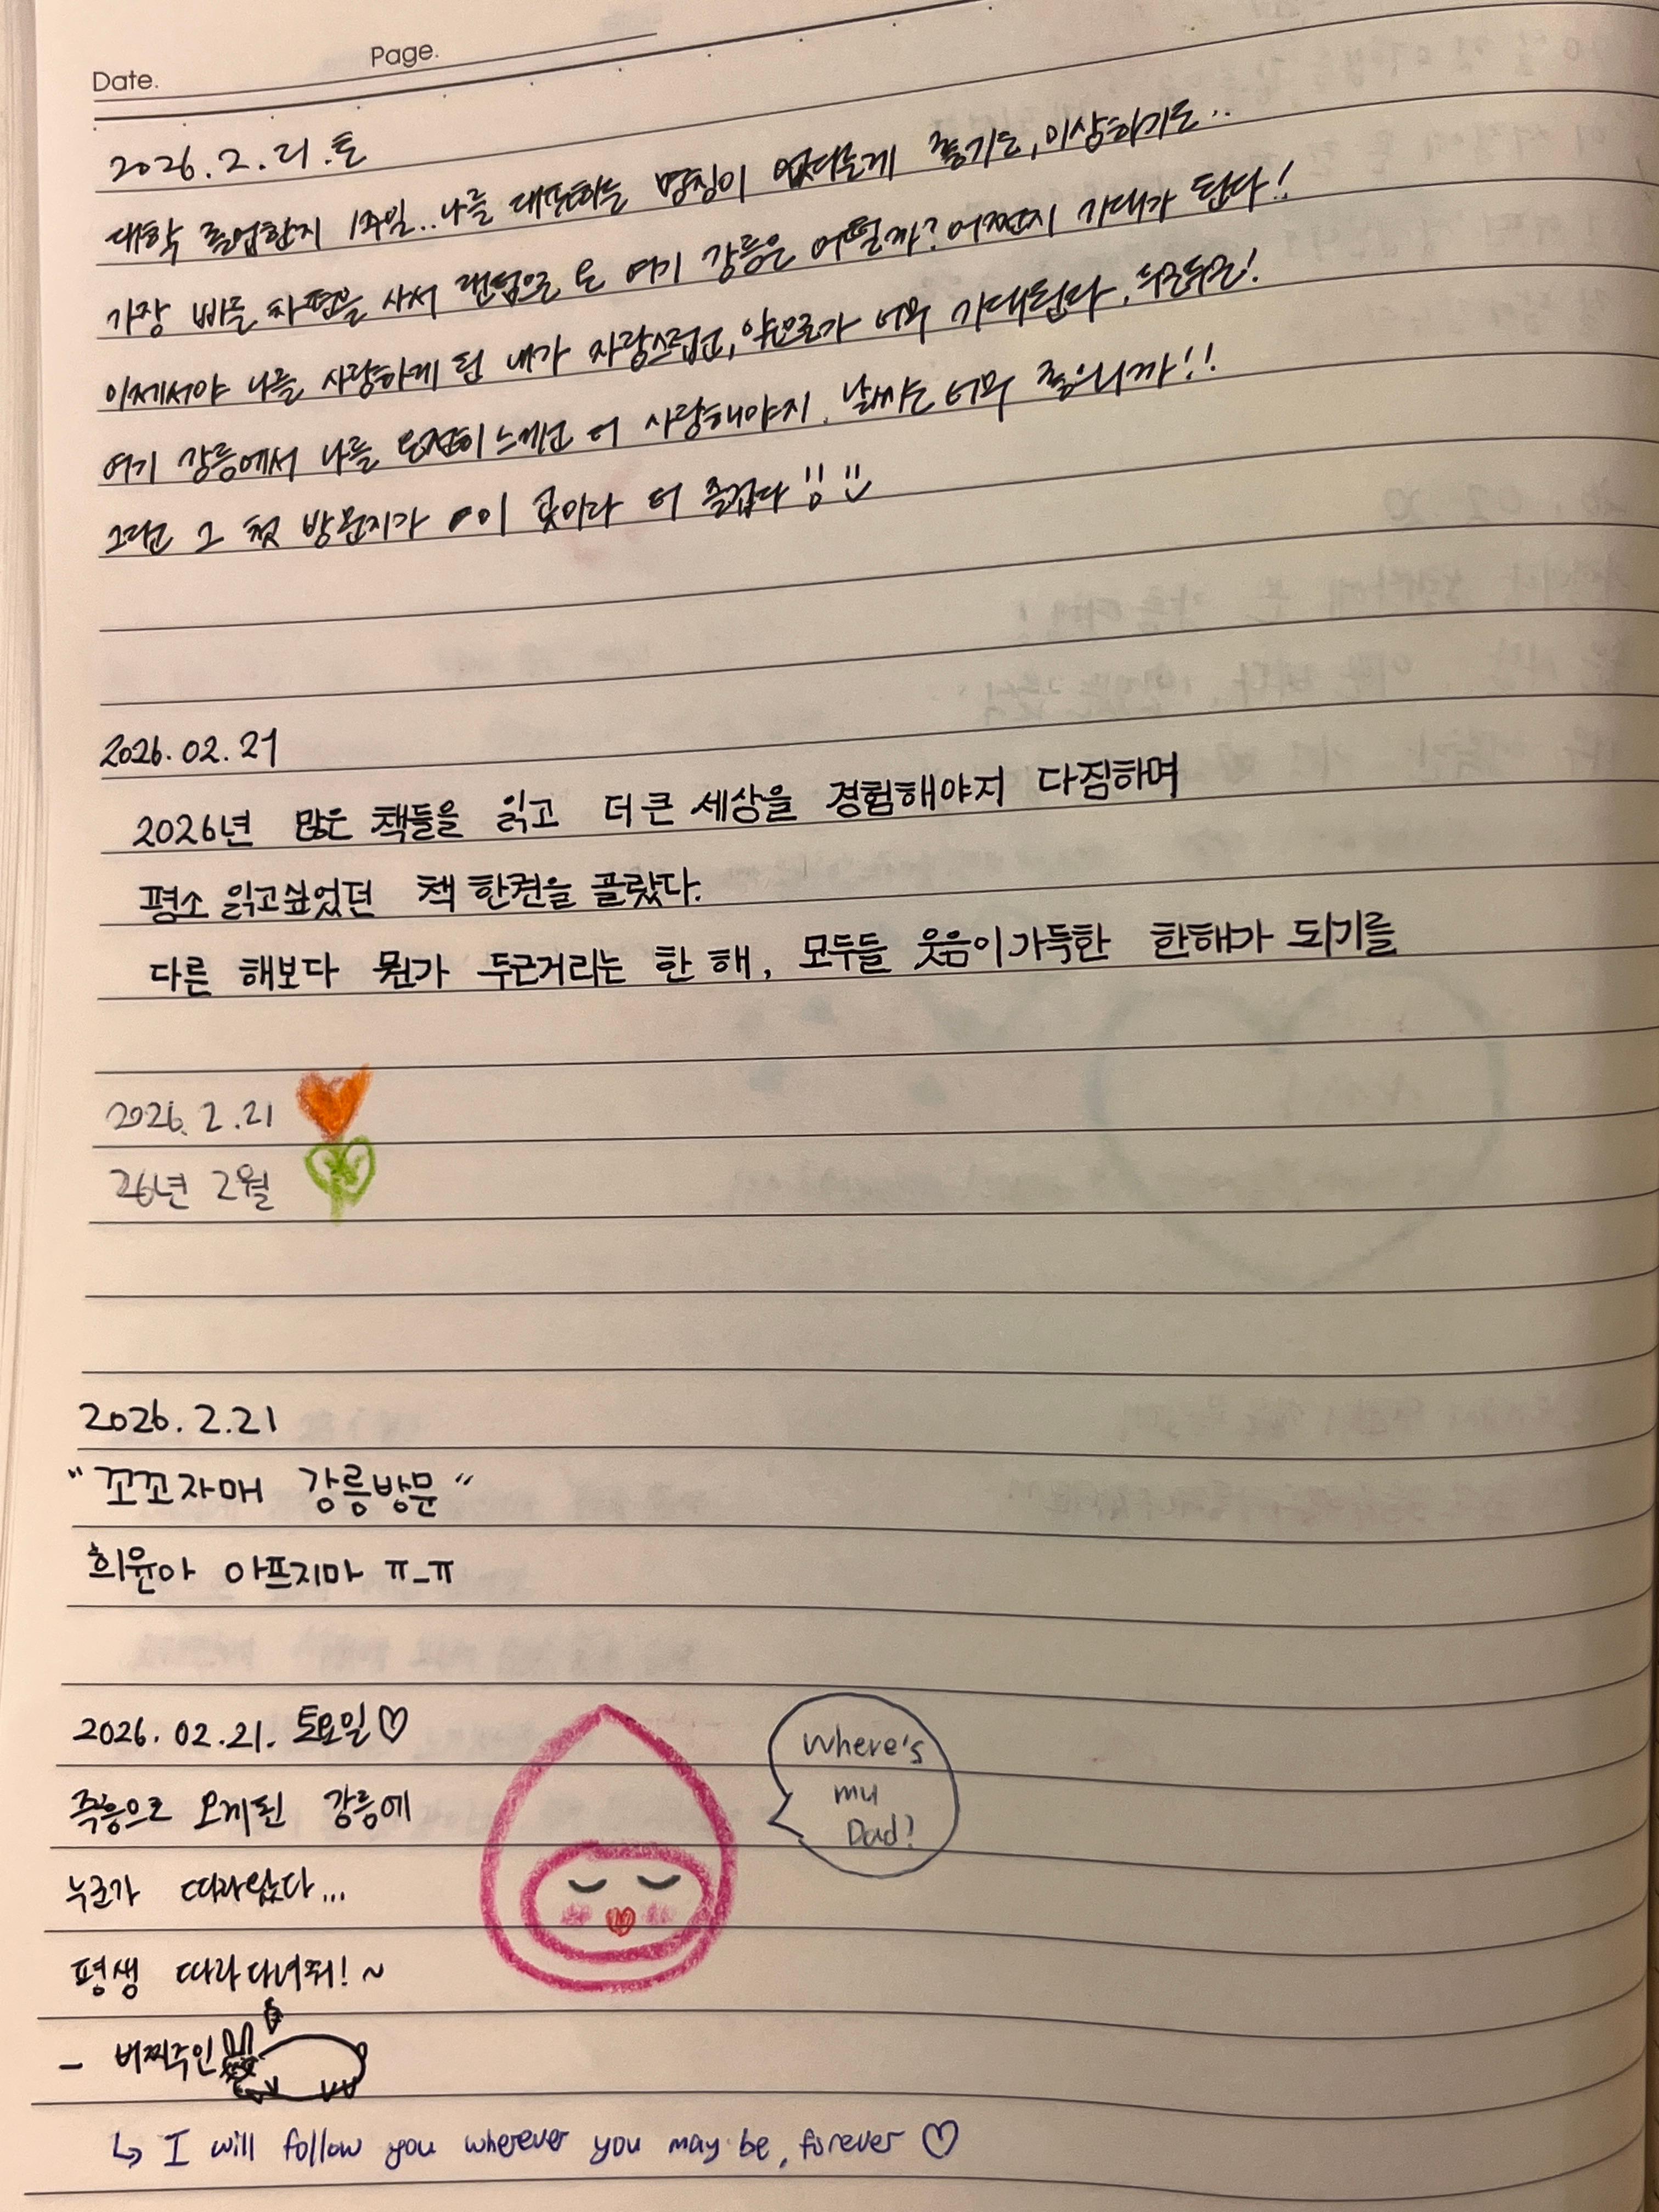 Date.
Page.
2026.2.21.토
대학 졸업한지 1주일.. 나를 대표하는 명칭이 없다는게 좋기도, 이상하기도..
가장 빠른 차편을 사서 랜덤으로 온 여기 강릉은 어떨까? 어쩐지 기대가 된다!
이제서야 나를 사랑하게 된 내가 자랑스럽고, 앞으로가 너무 기대된다. 두근두근!
여기 강릉에서 나를 온전히 느끼고 더 사랑해야지. 날씨는 너무 좋으니까!!
그리고 그 첫 방문지가 이 곳이라 더 즐겁다!! :)
2026.02.21
2026년 많은 책들을 읽고 더 큰 세상을 경험해야지 다짐하며
평소 읽고싶었던 책 한권을 골랐다.
다른 해보다 뭔가 두근거리는 한 해, 모두들 웃음이 가득한 한해가 되기를
2026.2.21
26년 2월
2026.2.21
"꼬꼬자매 강릉방문"
희윤아 아프지마 ㅠ_ㅠ
2026.02.21. 토요일♡
즉흥으로 오게된 강릉에
누군가 따라왔다...
평생 따라다녀줘!~
- 버찌주인
Where's
my
Dad?
↳ I will follow you wherever you may be, forever ♡